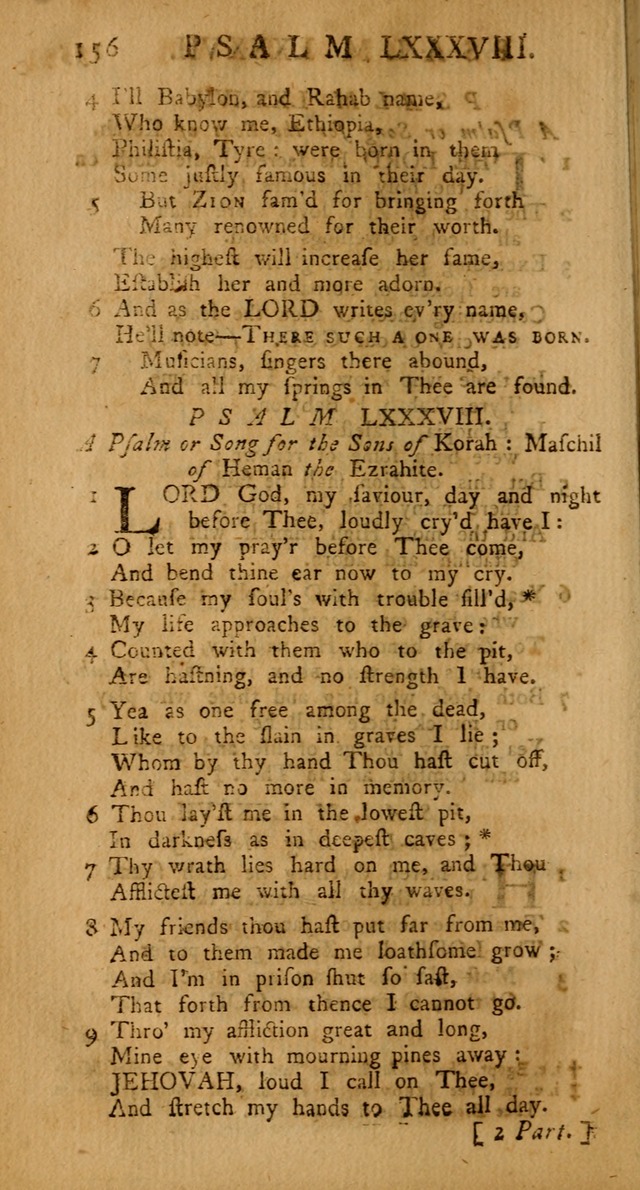 156 PSALM LXXXVIII.
4 I'll Babylon, and Rahab name,
Who know me, Ethiopia,
Philiſtia, Tyre : were born in them
Some juſtly famous in their day.
5 But ZION fam'd for bringing forth
Many renowned for their worth.
The higheſt will increaſe her fame,
Eſtabliſh her and more adorn.
6 And as the LORD writes ev'ry name,
He'll note—THERE SUCH A ONE WAS BORN.
7 Muſicians, ſingers there abound,
And all my ſprings in Thee are found.
PSALM LXXXVIII.
A Pſalm or Song for the Sons of Korah : Maſchil
of Heman the Ezrahite.
1 LORD God, my ſaviour, day and night
before Thee, loudly cry'd have I :
2 O let my pray'r before Thee come,
And bend thine ear now to my cry.
3 Becauſe my ſoul's with trouble fill'd, *
My life approaches to the grave :
4 Counted with them who to the pit,
Are haſtning, and no ſtrength I have.
5 Yea as one free among the dead,
Like to the ſlain in graves I lie ;
Whom by thy hand Thou haſt cut off,
And haſt no more in memory.
6 Thou lay'ſt me in the loweſt pit,
In darkneſs as in deepeſt caves ; *
7 Thy wrath lies hard on me, and Thou
Afflicteſt me with all thy waves.
8 My friends thou haſt put far from me,
And to them made me loathſome grow ;
And I'm in priſon ſhut ſo faſt,
That forth from thence I cannot go.
9 Thro' my affliction great and long,
Mine eye with mourning pines away :
JEHOVAH, loud I call on Thee,
And ſtretch my hands to Thee all day.
[ 2 Part. ]